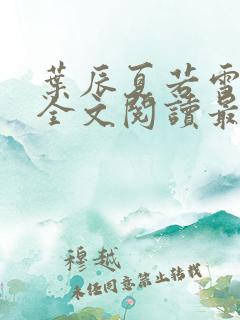 葉辰夏若雪
全文閱讀最
穆越
未經同意禁止轉載